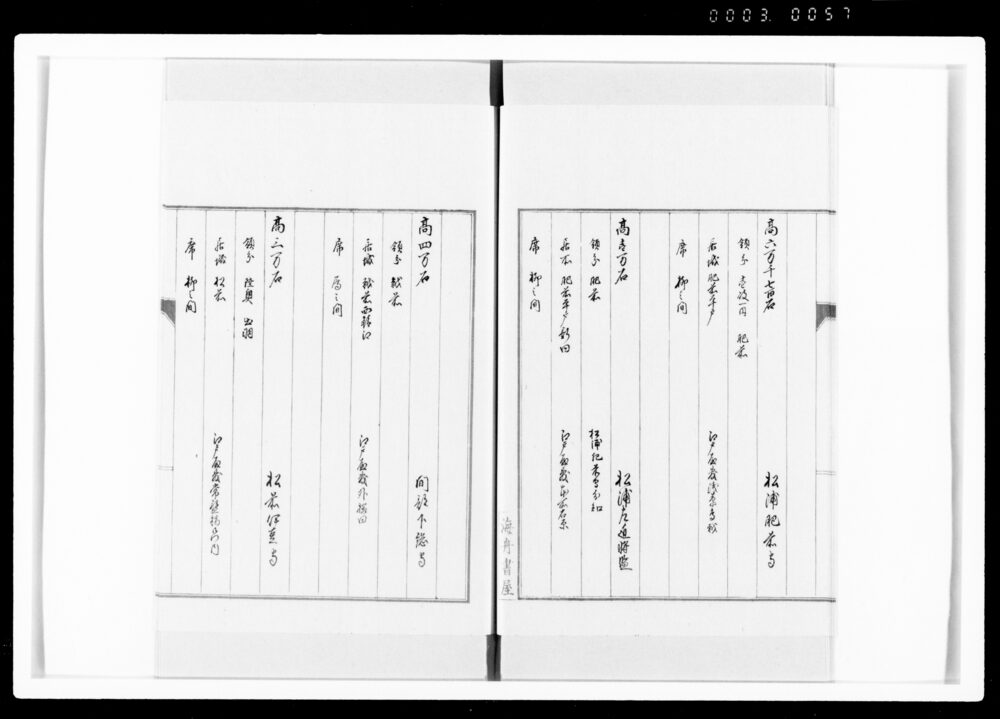 0003. 0057
高六万千七百石 松浦肥前守
領分 壱岐一円 肥前
居城 肥前平戸 江戸屋敷浅草鳥越
席 柳之間
高壱万石 松浦左近将監
領分 肥前 松浦肥前守分知
居所 肥前平戸新田 江戸屋敷本所石原
席 柳之間
海舟書屋
高四万石 間部下総守
領分 越前
居城 越前西鯖江 江戸屋敷外桜田
席 雁之間
高三万石 松前伊豆守
領分 陸奥 出羽
居城 松前 江戸屋敷常盤橋御門内
席 柳之間